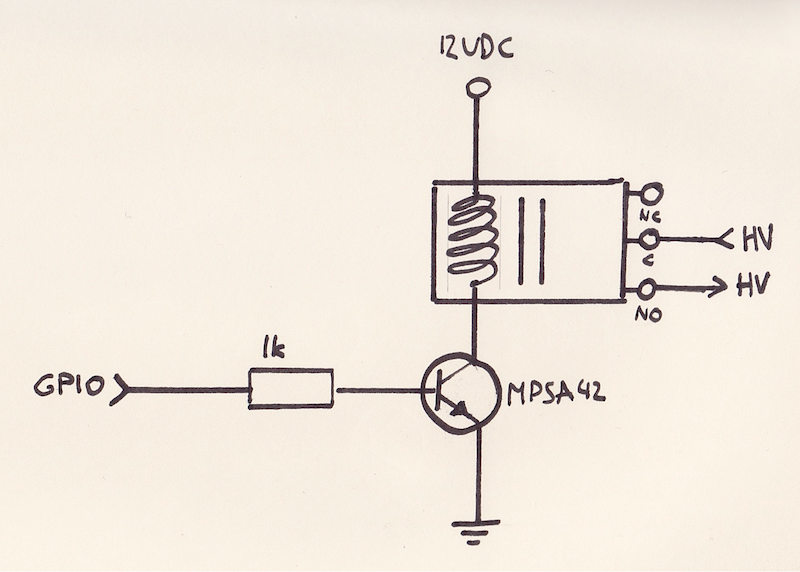 12VDC
NC
HV
C
HV
NO
1k
GPIO
MPSA42